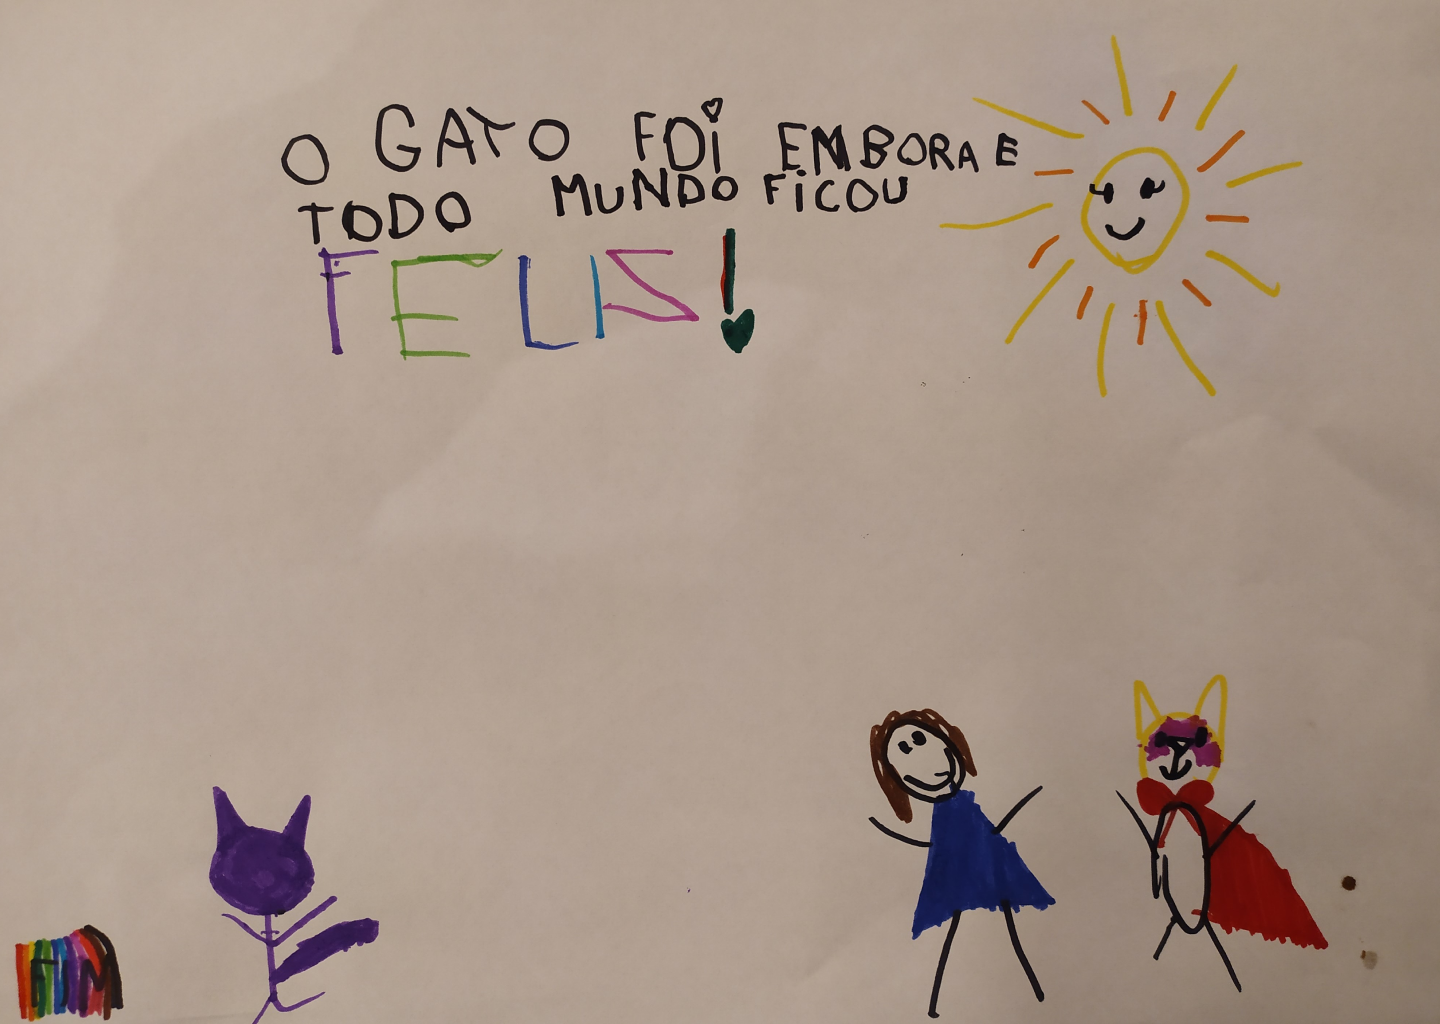 O GATO FOI EMBORA E
TODO MUNDO FICOU
FELIS!
FIM